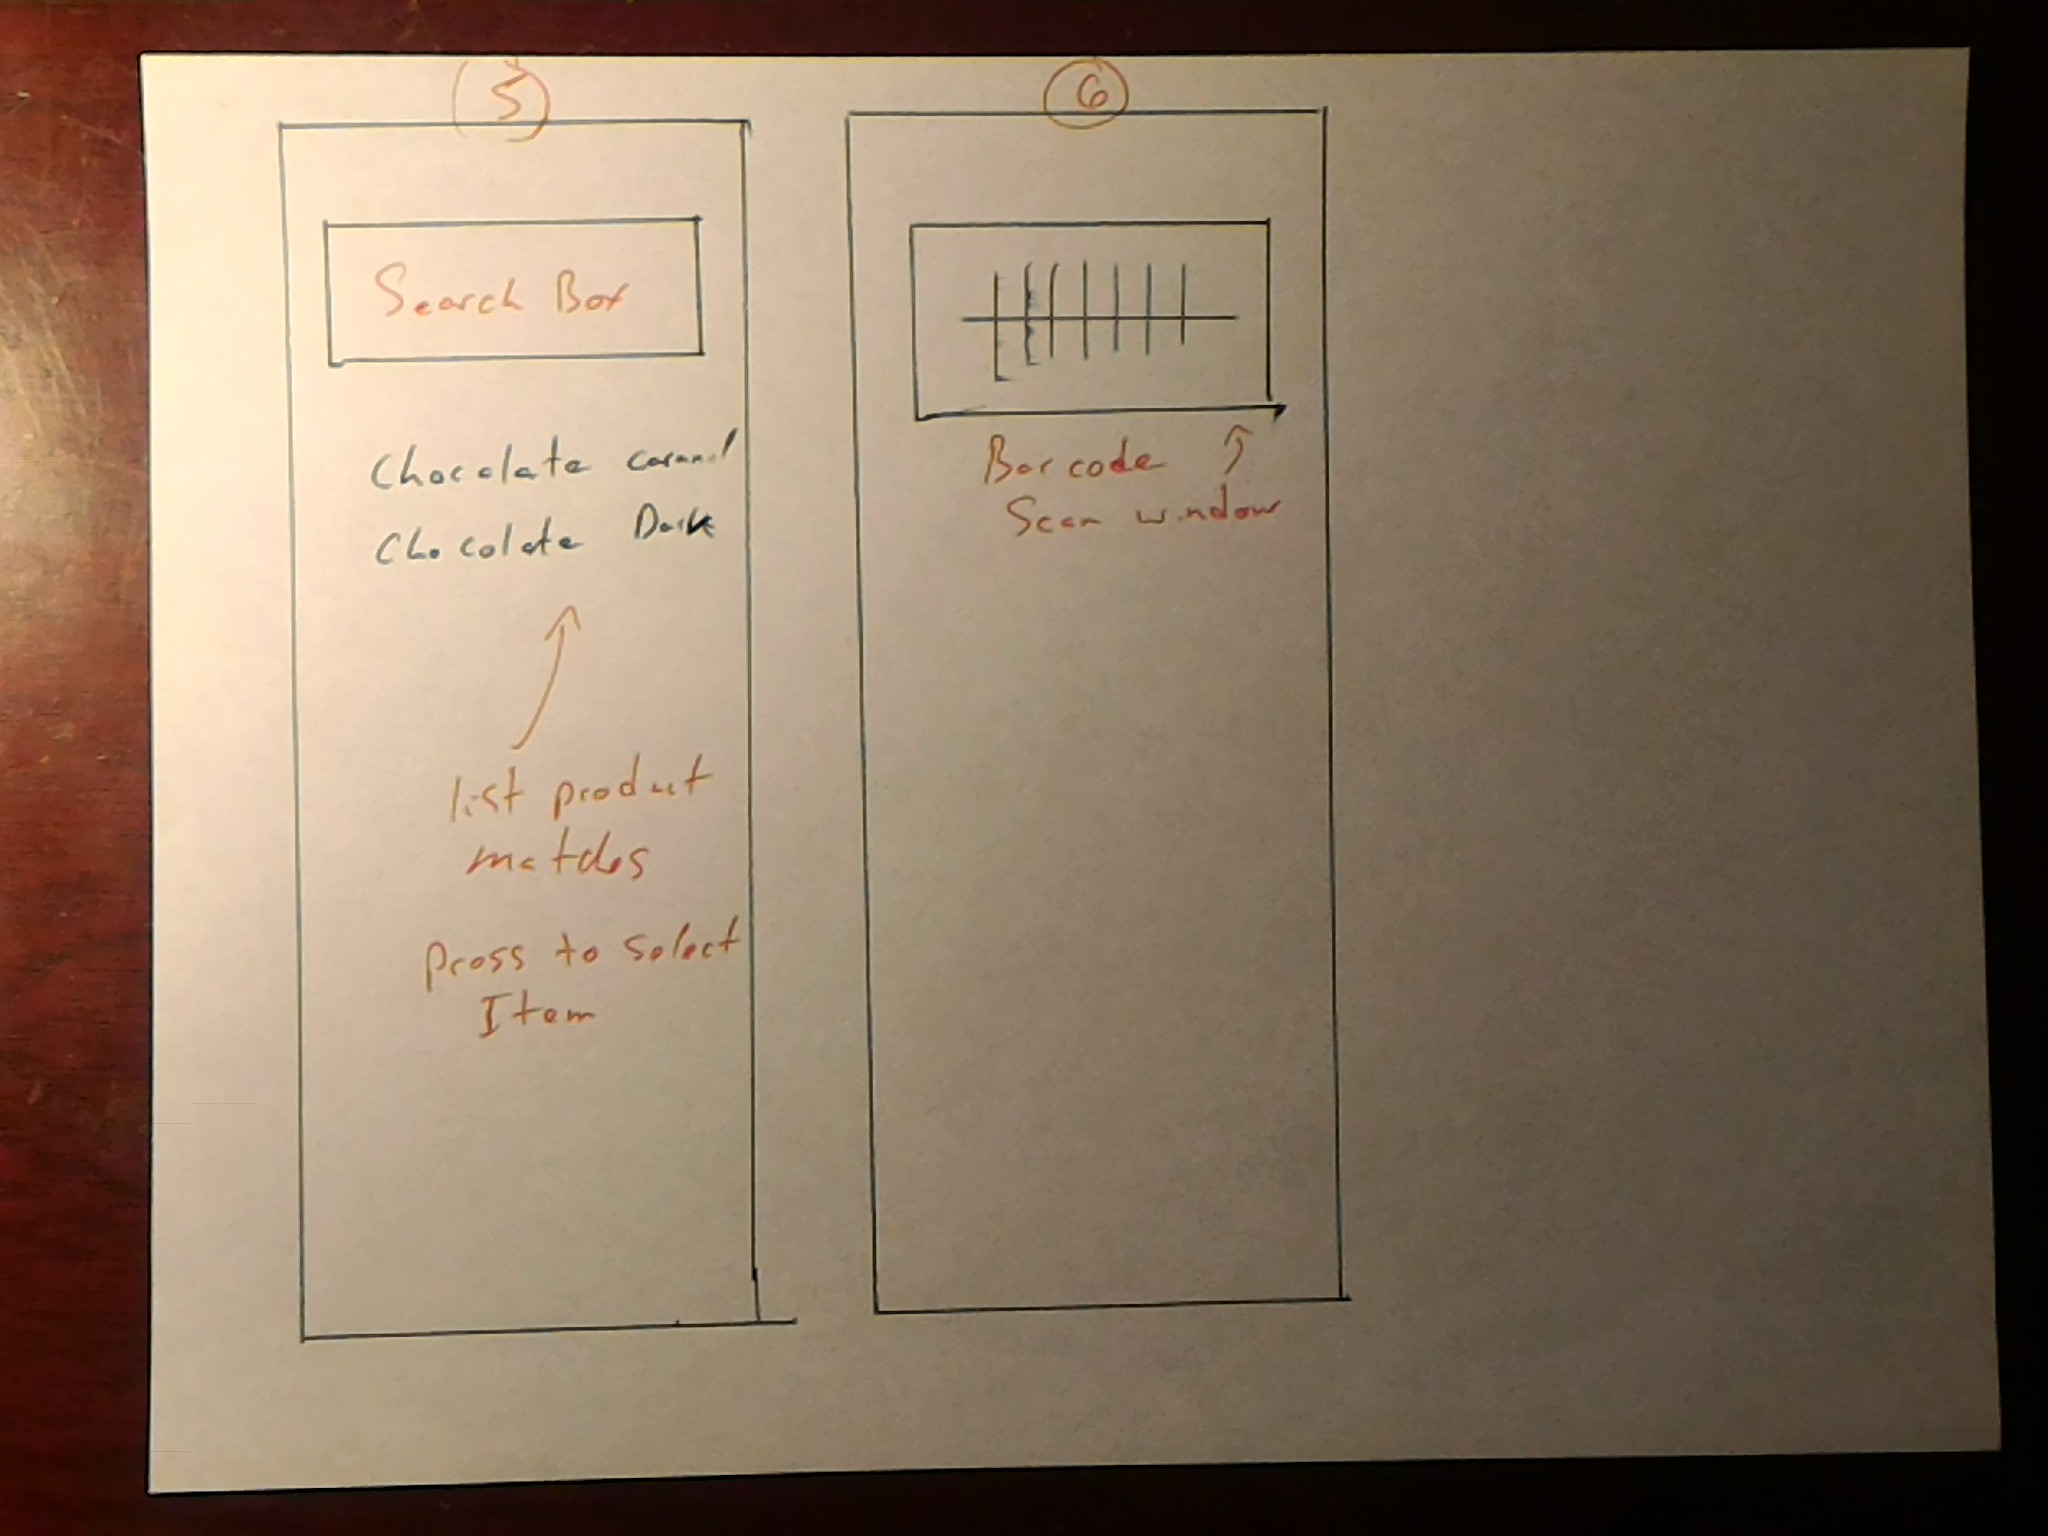 5
Search Box
Chocolate caramel
Chocolate Dark
list product
matches
press to select
Item
6
Barcode
Scan window